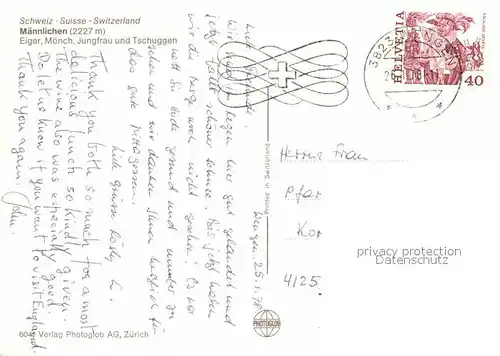 Schweiz - Suisse - Switzerland
Männlichen (2227 m)
Eiger, Mönch, Jungfrau und Tschuggen
3823 WENGEN
HELVETIA
40
Wengen 25.1.78
Liebe
wir sind im Regen hier gut gelandet und
jetzt schöner Schnee. Bis jetzt haben
wir die Berge noch nicht gesehen. Es war
nett Sie beide gesund und munter zu
sehen und wir danken Ihnen herzlich für
das gute Mittagessen.
Liebe Grüsse
Thank you both so much for a most
delicious lunch so kindly given.
The wine also was especially good.
Do let us know if you want to visit England.
Thank you again. John.
Herrn + Frau
Pfar
Kor
4125
privacy protection
Datenschutz
Printed in Switzerland
PHOTOGLOB
6041 Verlag Photoglob AG, Zürich